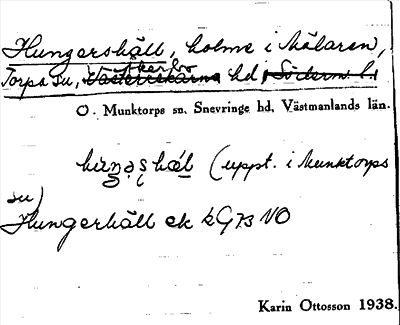 Hungershäll, holme i Mälaren,
Åkerbo
Torpa sn, Västerrekarne hd, Söderm. l.
O. Munktorps sn. Snevringe hd. Västmanlands län.
(uppt. i Munktorps
sn)
Hungerhäll ek kG73 NO
Karin Ottosson 1938.